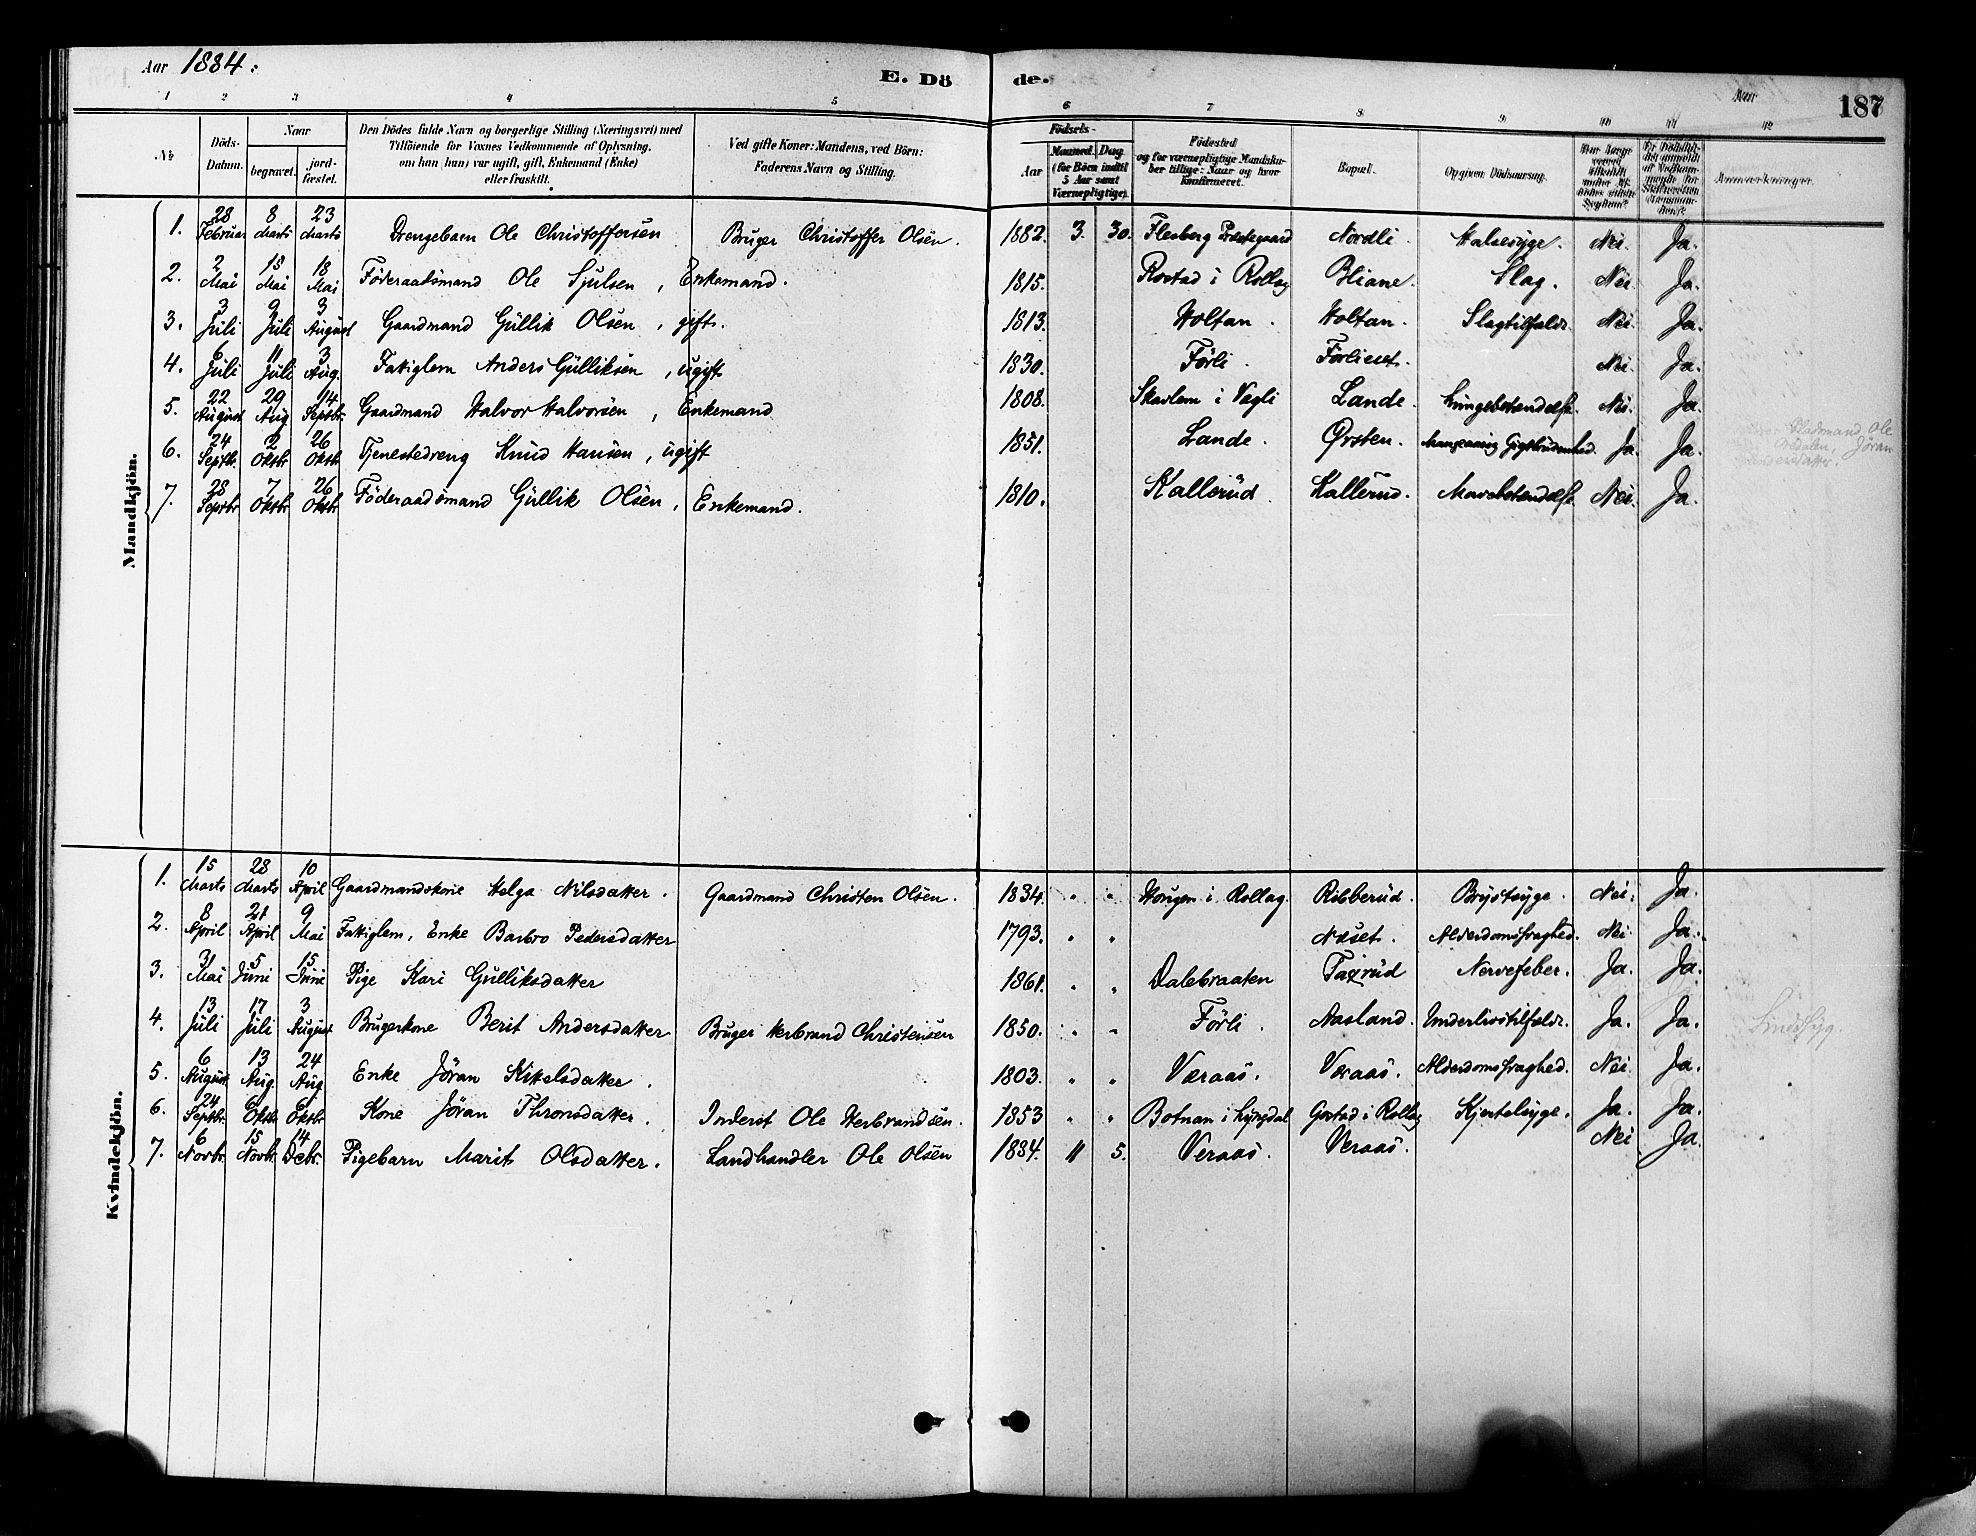 Aar 1884.
E. Dö de.
187
1 2 3 4 5 6 7 8 9 10 11 12
No. Döds-Datum. Naar begravet. jord-fæstet. Den Dödes fulde Navn og borgerlige Stilling (Næringsvei) med Tilföiende for Voxnes Vedkommende af Oplysning, om han (hun) var ugift, gift, Enkemand (Enke) eller fraskilt. Ved gifte Koner: Mandens, ved Börn: Faderens Navn og Stilling. Födsels- Aar Maaned. Dag (for Börn indtil 5 Aar samt Værnepligtige). Födested og for værnepligtige Mandskaber tillige: Naar og hvor konfirmeret. Bopæl. Opgiven Dödsaarsag. Anmærkninger.
Mandkjön.
1. 28 Februar 8 Marts 23 Marts Drengebarn Ole Christoffersen Bruger Christoffer Olsen. 1882. 3. 30. Flesberg Præstegaard Nordli. Halsesyge. Nei. Ja.
2. 2 Mai 15 Mai 18 Mai Föderaadsmand Ole Sjulsen, Enkemand. 1815. Rostad i Rollag Bliane. Slag. Nei Ja.
3. 3 Juli 9 Juli 3 August Gaardmand Gullik Olsen, gift. 1813. Holtan. Holtan. Slagtilfælde. Nei. Ja.
4. 6 Juli 11 Juli 3 Aug. Fattiglem Anders Gulliksen, ugift 1830. Förli. Förlieiet. Nei. Ja.
5. 22 August 29 Aug 14 Septbr. Gaardmand Halvor Halvorsen, Enkemand 1808. Skavlem i Vegli Lande. Lungebetændelse. Nei. Ja.
6. 24 Septbr. 2 Oktbr. 26 Oktbr. Tjenestedreng Knud Hansen, ugift 1851. Lande. Örsten. Ja. Ja.
7. 28 Septbr. 7 Oktbr. 26 Oktbr. Föderaadsmand Gullik Olsen, Enkemand. 1810. Kallerud. Kallerud. Mavebetændelse. Nei. Ja.
Kvindekjön.
1. 15 Marts 28 Marts 10 April Gaardmandskone Helga Nilsdatter. Gaardmand Christen Olsen. 1834. " " Hougen i Rollag. Ribberud. Brystsyge. Nei. Ja.
2. 8 April 21 April 9 Mai Fattiglem, Enke Barbro Pedersdatter 1793. " " Næset. Alderdomssvaghed. Nei Ja.
3. 31 Mai 5 Juni 15 Juni Pige Kari Gulliksdatter 1861. " " Dalebraaten Taxrud Nervefeber. Ja. Ja.
4. 13 Juli 17 Juli 3 August Brugerkone Berit Andersdatter Bruger Herbrand Christensen 1850. " " Förli. Aasland. Underlivstilfælde. Ja. Ja. Sindssyg.
5. 6 August 13 Aug. 24 Aug Enke Jöran Kittelsdatter. 1803. " " Væraas. Væraas. Alderdomssvaghed. Nei. Ja.
6. 24 Septbr. 6 Oktbr. 6 Oktbr. Kone Jöran Thronsdatter. Inderst Ole Herbrandsen. 1853 " " Botnan i Lyngdal Gostad i Rollag Kjertelsyge. Ja. Ja.
7. 6 Novbr. 15 Novbr. 14 Debr. Pigebarn Marit Olsdatter. Landhandler Ole Olsen 1884. 11 5. Veraas. Veraas. Nei Ja.